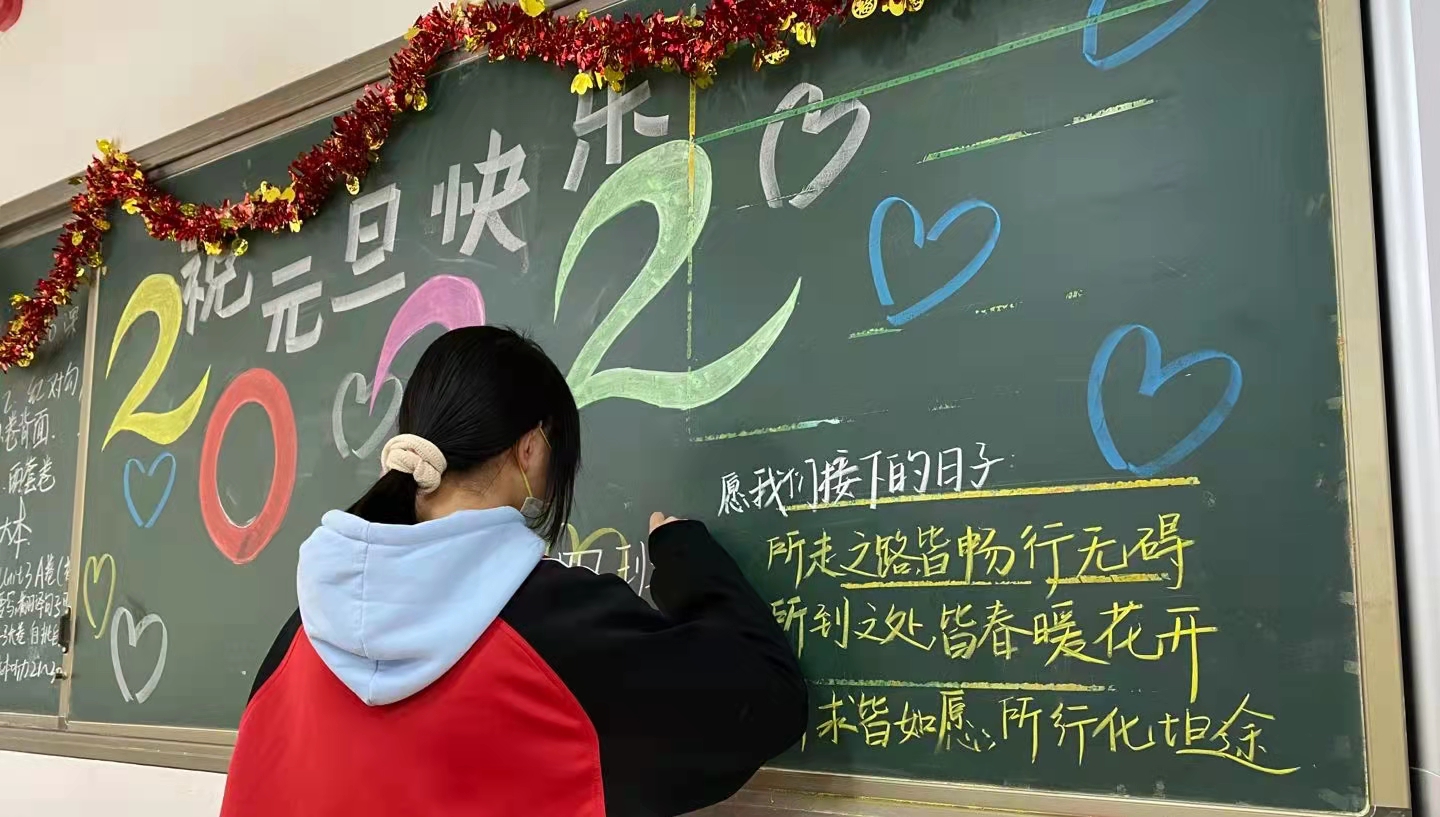 祝元旦快乐
2022
愿我们接下的日子
所走之路皆畅行无碍
所到之处皆春暖花开
求皆如愿,所行化坦途
四班
红对勾
卷背面
两套卷
大本